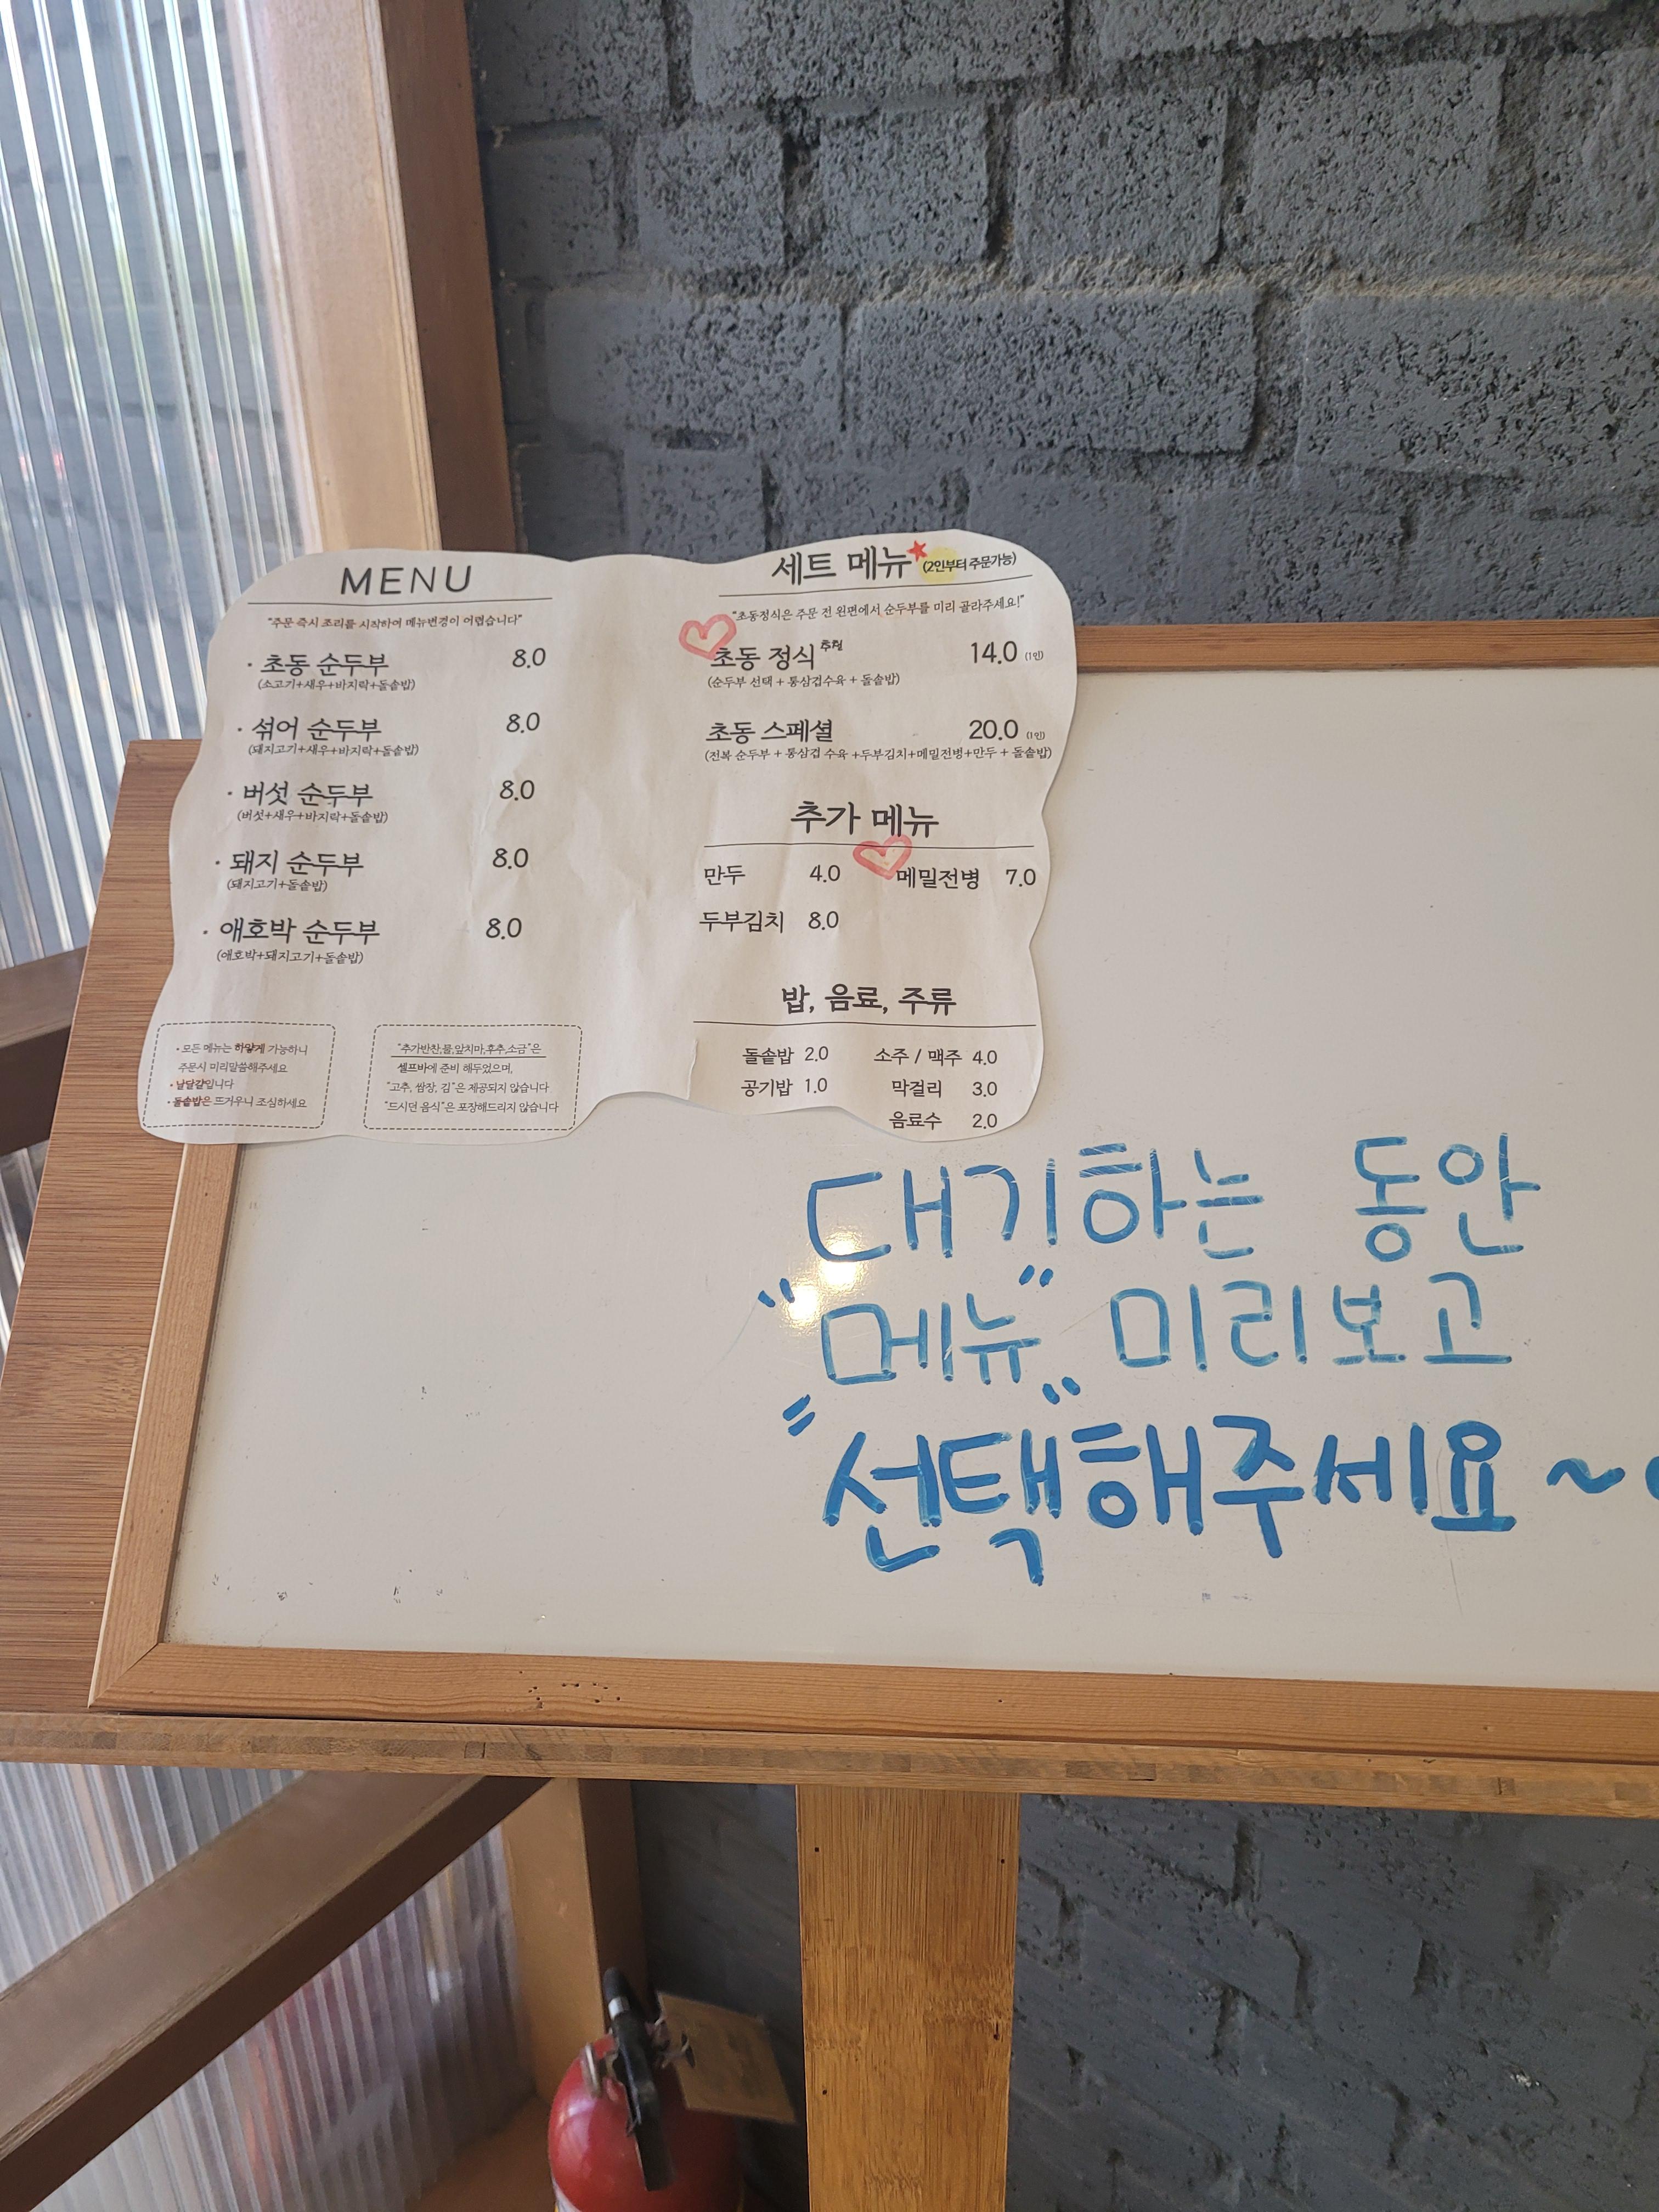 MENU
"주문 즉시 조리를 시작하여 메뉴변경이 어렵습니다"
· 초동 순두부 8.0
(소고기+새우+바지락+돌솥밥)
· 섞어 순두부 8.0
(돼지고기+새우+바지락+돌솥밥)
· 버섯 순두부 8.0
(버섯+새우+바지락+돌솥밥)
· 돼지 순두부 8.0
(돼지고기+돌솥밥)
· 애호박 순두부 8.0
(애호박+돼지고기+돌솥밥)
• 모든 메뉴는 하얗게 가능하니
주문시 미리말씀해주세요
• 날달걀입니다
• 돌솥밥은 뜨거우니 조심하세요
"추가반찬,물,앞치마,후추,소금"은
셀프바에 준비 해두었으며,
"고추, 쌈장, 김"은 제공되지 않습니다
"드시던 음식"은 포장해드리지 않습니다
세트 메뉴 (2인부터 주문가능)
"초동정식은 주문 전 왼편에서 순두부를 미리 골라주세요!"
초동 정식 추천 14.0 (1인)
(순두부 선택 + 통삼겹수육 + 돌솥밥)
초동 스페셜 20.0 (1인)
(전복 순두부 + 통삼겹 수육 +두부김치+메밀전병+만두 + 돌솥밥)
추가 메뉴
만두 4.0 메밀전병 7.0
두부김치 8.0
밥, 음료, 주류
돌솥밥 2.0 소주 / 맥주 4.0
공기밥 1.0 막걸리 3.0
음료수 2.0
대기하는 동안
"메뉴" 미리보고
"선택"해주세요~